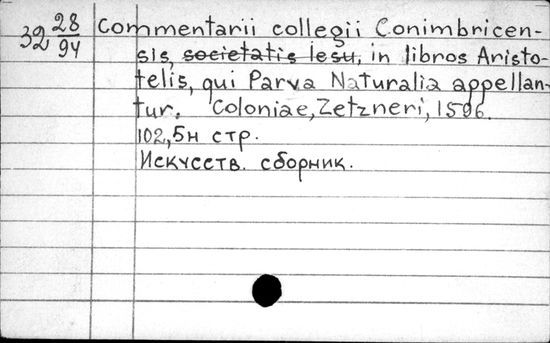 32 28/94 Commentarii collegii Conimbricen-
sis, societatis Iesu, in libros Aristo-
telis, qui Parva Naturalia appellan-
tur. Coloniae, Zetzneri, 1596.
102, 5н стр.
Искусств. сборник.